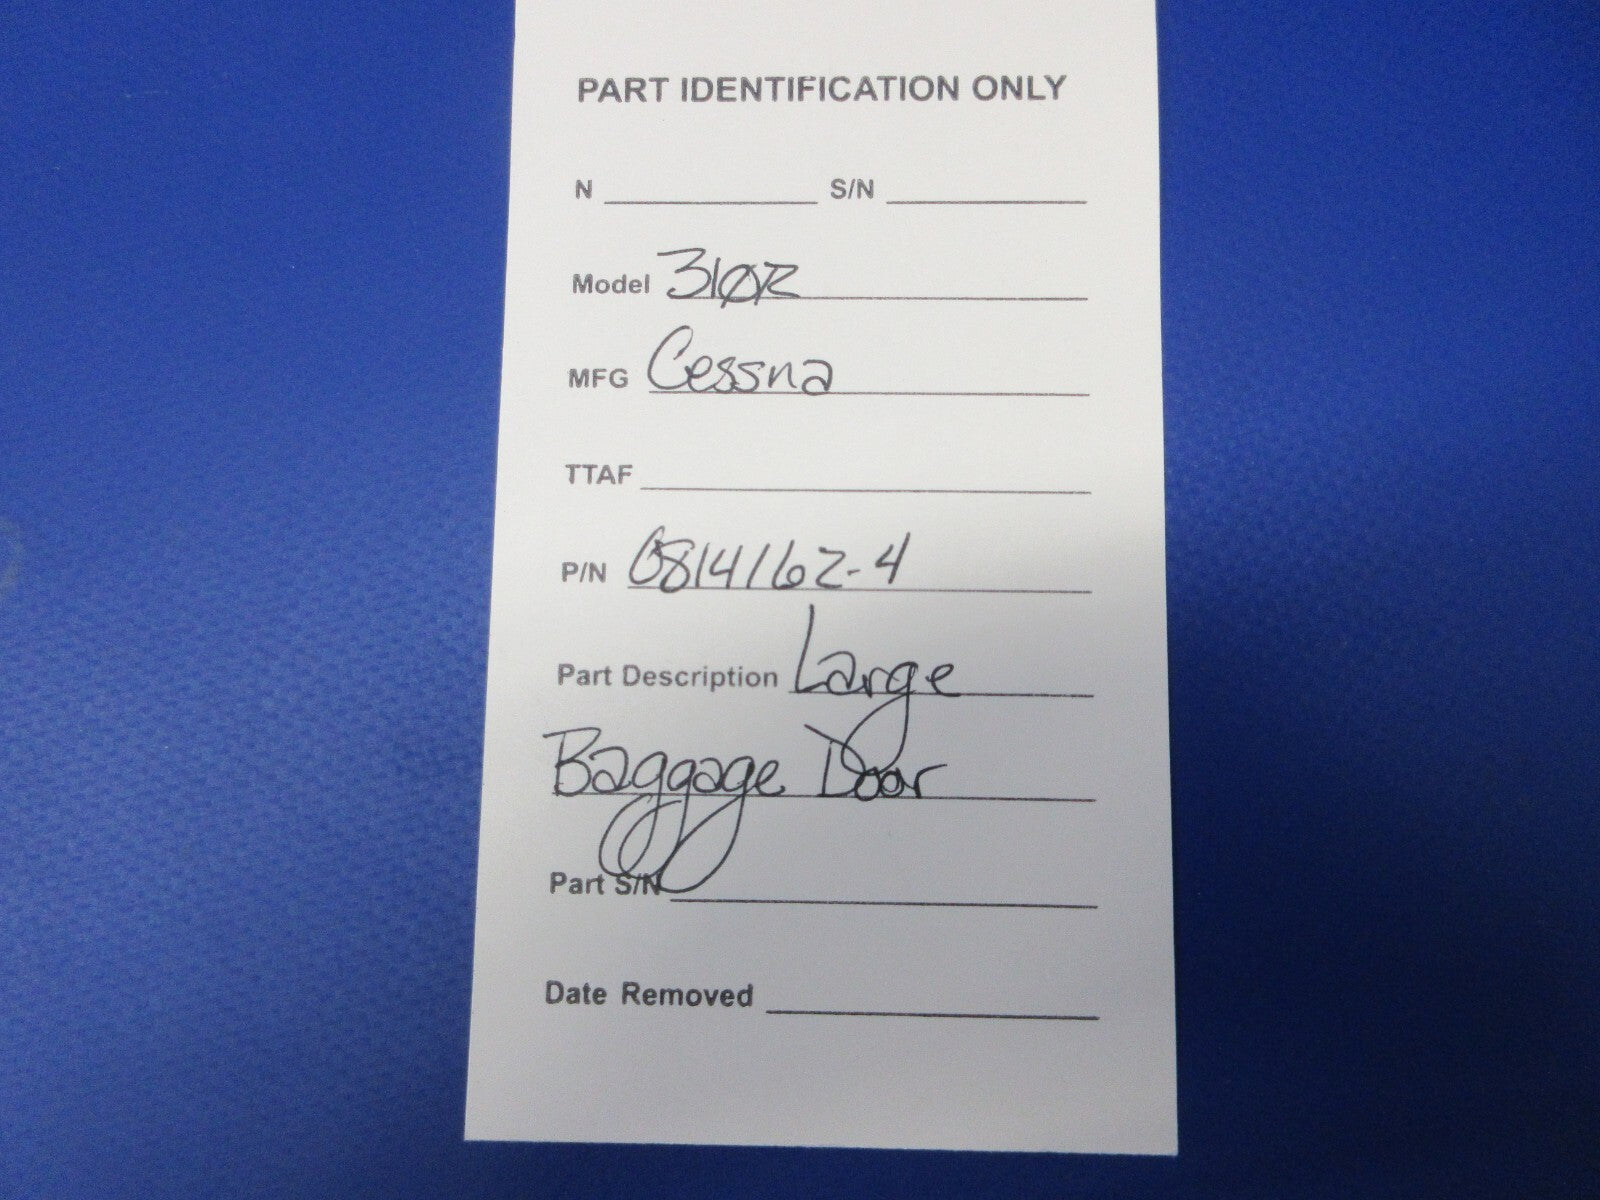 PART IDENTIFICATION ONLY
N S/N
Model 310R
MFG Cessna
TTAF
P/N 0814162-4
Part Description Large
Baggage Door
Part S/N
Date Removed